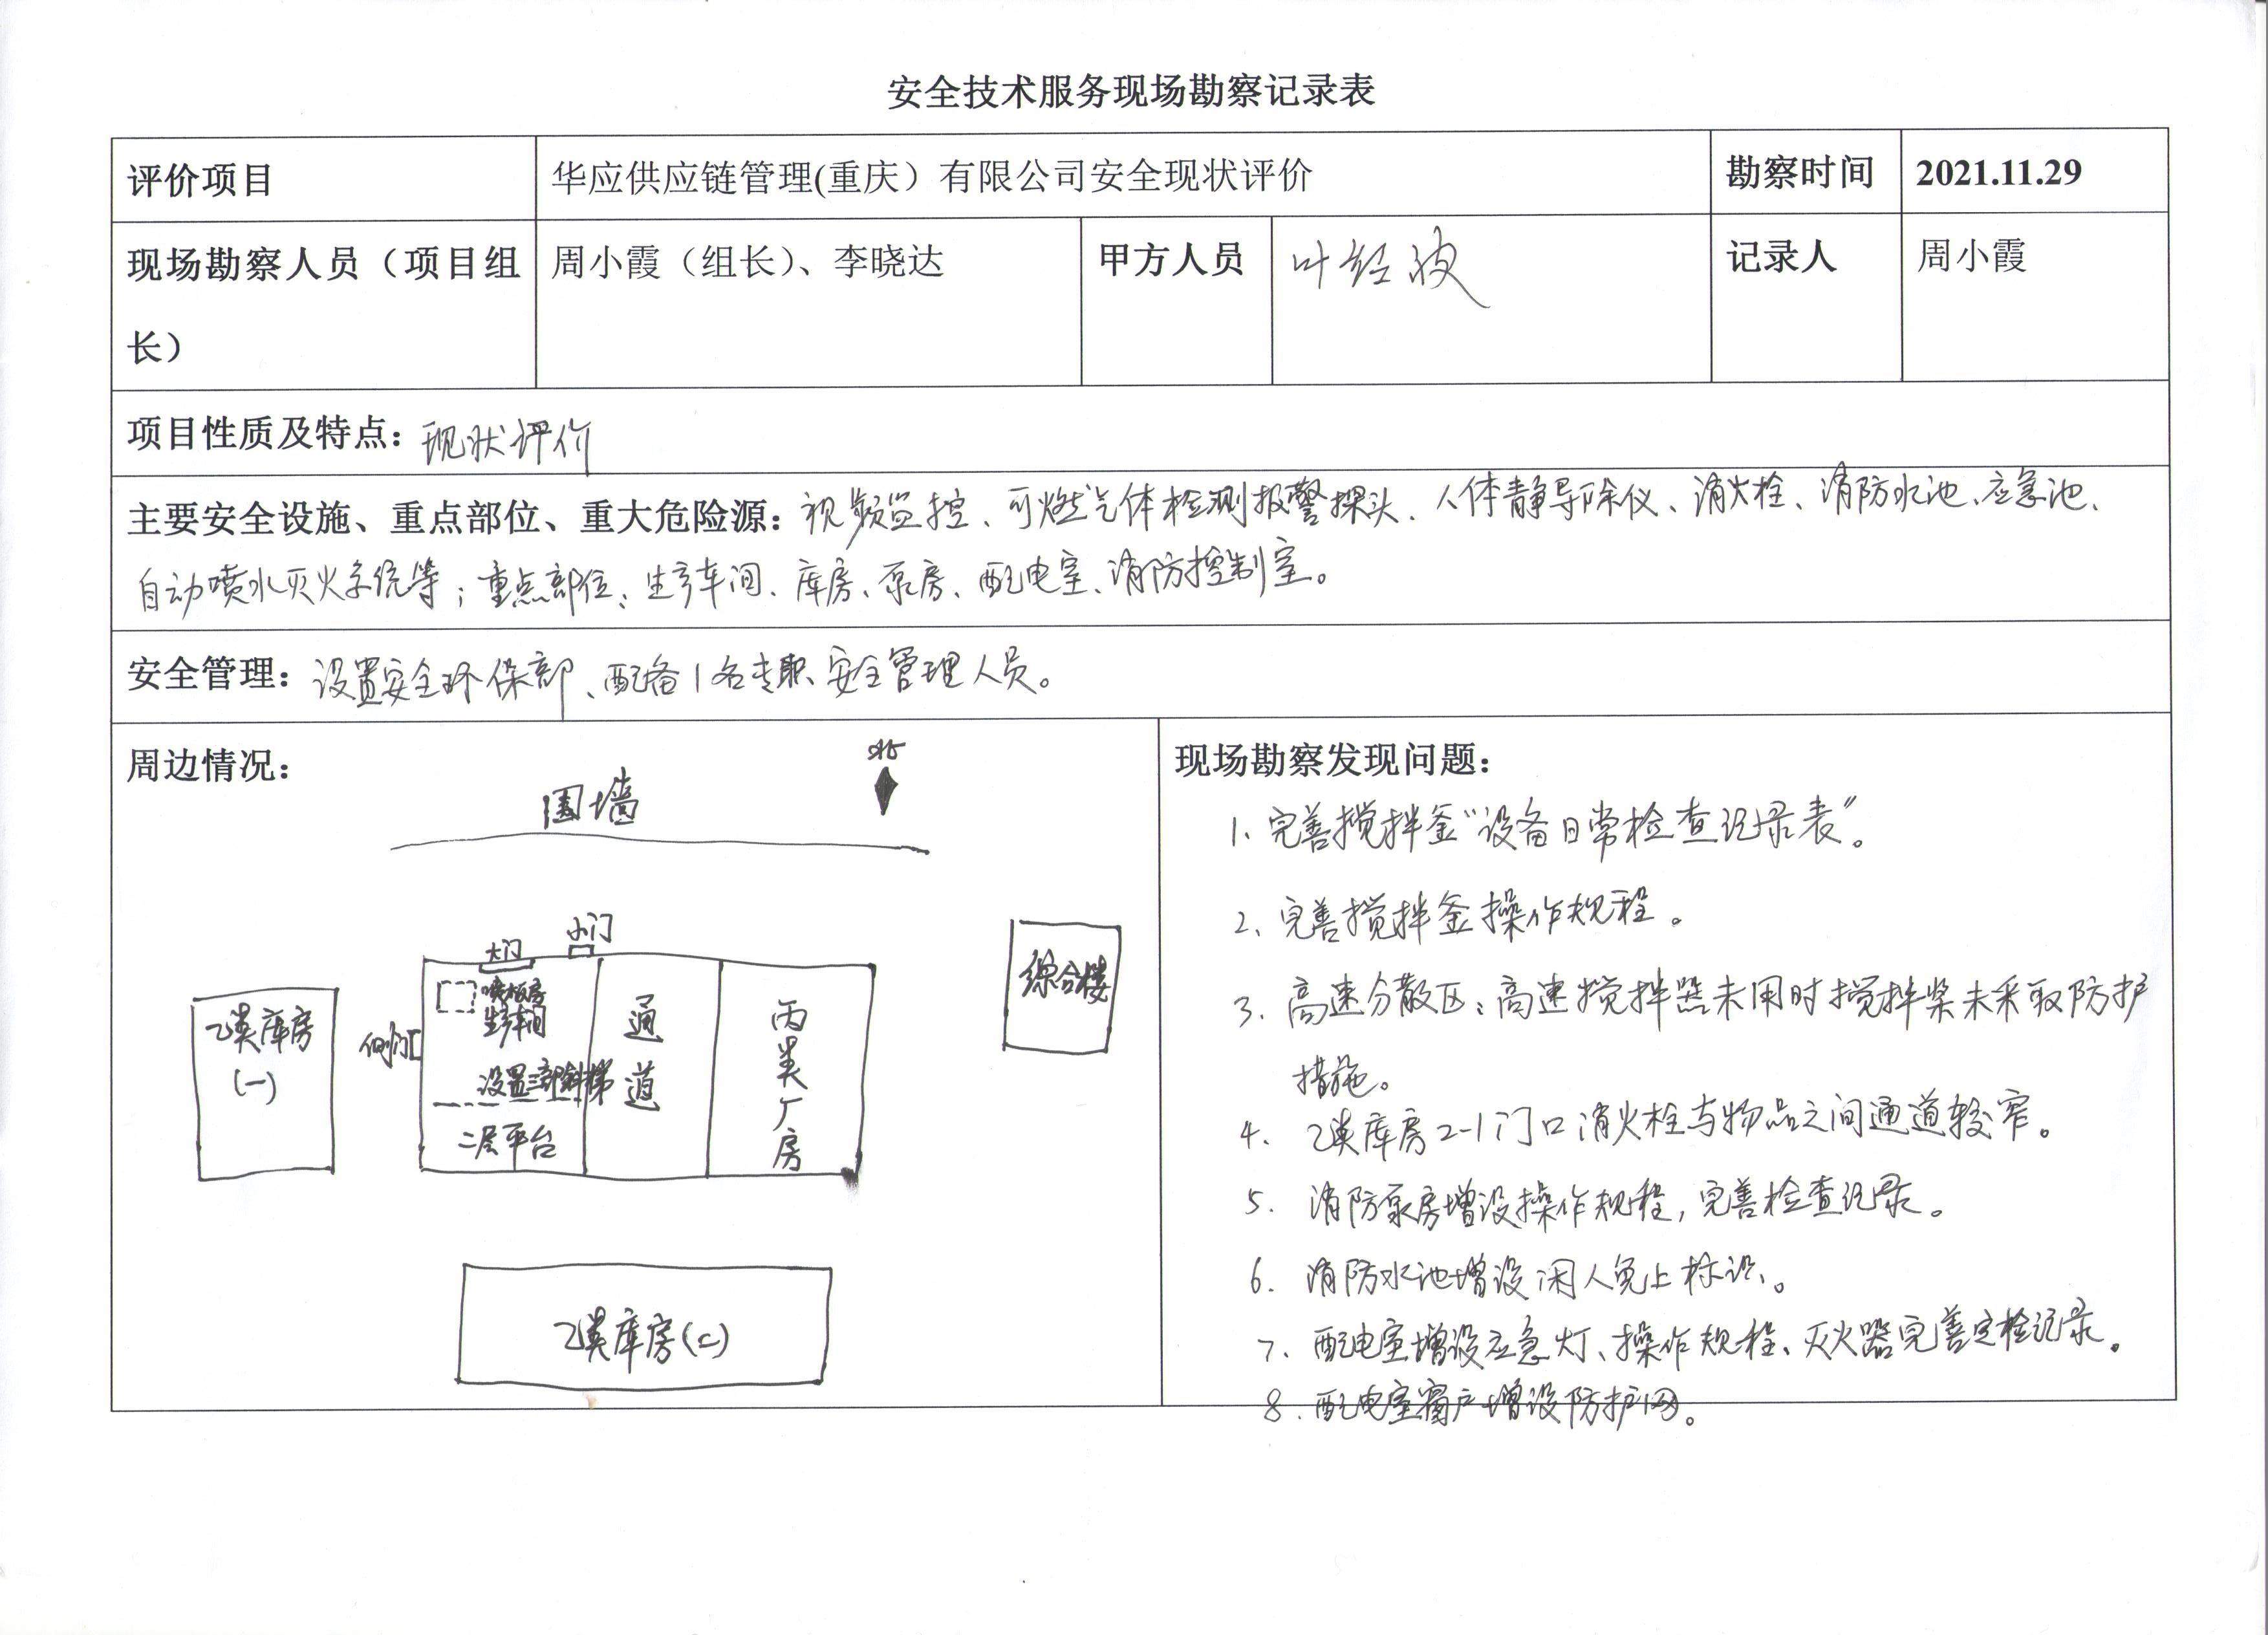 安全技术服务现场勘察记录表
评价项目 华应供应链管理(重庆）有限公司安全现状评价 勘察时间 2021.11.29
现场勘察人员（项目组 周小霞（组长）、李晓达 甲方人员 叶经波 记录人 周小霞
长）
项目性质及特点：现状评价
主要安全设施、重点部位、重大危险源：视频监控、可燃气体检测报警探头、人体静导除仪、消火栓、消防水池、应急池、
自动喷水灭火系统等；重点部位：生产车间、库房、泵房、配电室、消防控制室。
安全管理：设置安全环保部、配备1名专职安全管理人员。
周边情况：
北
围墙
小门
大门
喷板房
生产车间
侧门
设置三部斜梯
二层平台
通道
丙类厂房
综合楼
乙类库房
(一)
乙类库房(二)
现场勘察发现问题：
1、完善搅拌釜“设备日常检查记录表”。
2、完善搅拌釜操作规程。
3、高速分散区：高速搅拌器未用时搅拌桨未采取防护
措施。
4、乙类库房2-1门口消火栓与物品之间通道较窄。
5、消防泵房增设操作规程，完善检查记录。
6、消防水池增设闲人免上标识。
7、配电室增设应急灯、操作规程、灭火器完善定检记录。
8、配电室窗户增设防护网。